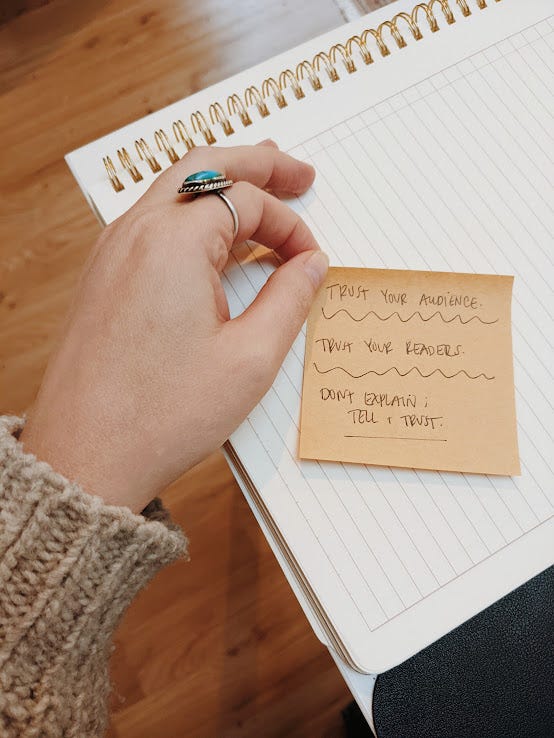 TRUST YOUR AUDIENCE.
TRUST YOUR READERS.
DONT EXPLAIN ;
TELL + TRUST.